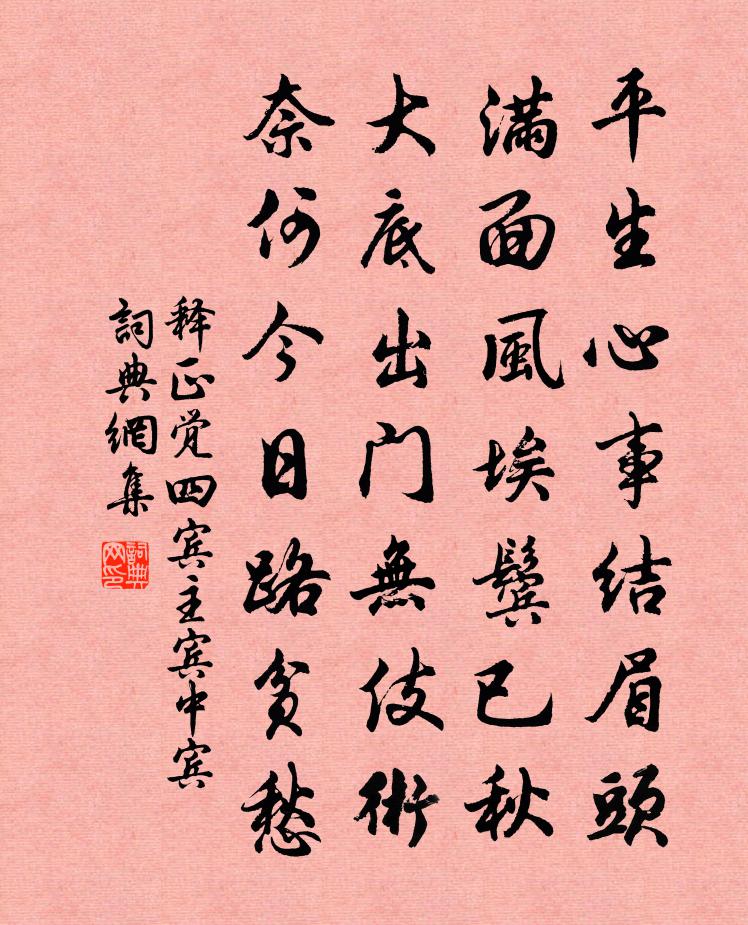 平生心事结眉頭
满面風埃鬓已秋
大底出门無伎術
奈何今日路贫愁
释正觉四宾主宾中宾
詞典網集
詞典网印